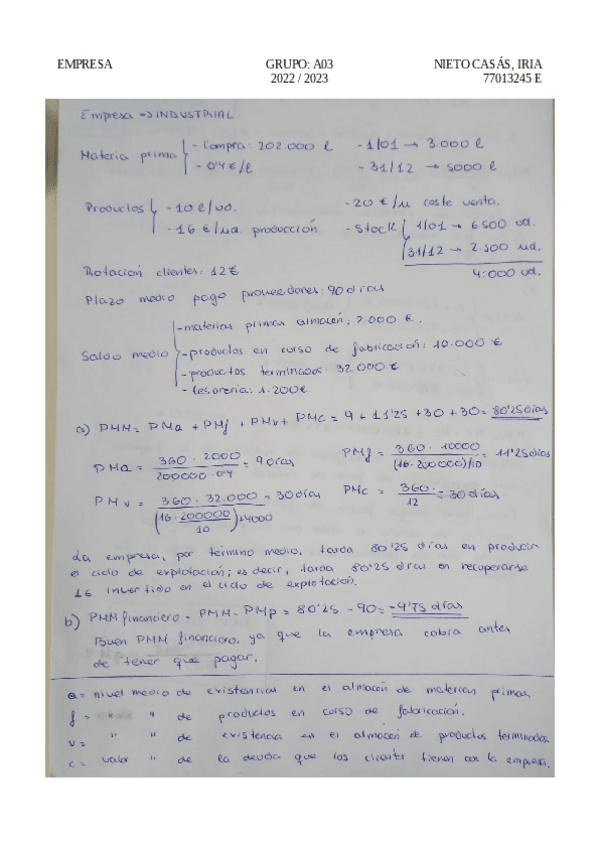 EMPRESA GRUPO: A03 NIETO CASÁS, IRIA
2022 / 2023 77013245 E
Empresa => INDUSTRIAL
Materia prima - Compra: 202.000 l - 1/01 → 3.000 l
- 0'4 €/l - 31/12 → 5000 l
Productos - 10 l/ud. - 20 €/u coste venta.
- 16 €/ud. producción - Stock 1/01 → 6.500 ud.
31/12 → 2.500 ud.
4.000 ud.
Rotación clientes: 12€
Plazo medio pago proveedores: 90 días
Saldo medio - materias primas almacén: 2.000 €.
- productos en curso de fabricación: 10.000 €
- productos terminados: 32.000 €
- tesorería: 1.200€
a) PMM = PMa + PMf + PMv + PMc = 9 + 11'25 + 30 + 30 = 80'25 días
PMa = 360 · 2000 / 200000 · 0'4 = 9 días PMf = 360 · 10000 / (16 · 200000)/10 = 11'25 días
PMv = 360 · 32.000 / (16·200000 / 10)+ 4000 = 30 días PMc = 360 · / 12 = 30 días
La empresa, por término medio, tarda 80'25 días en producir
el ciclo de explotación; es decir, tarda 80'25 días en recuperarse
1€ invertido en el ciclo de explotación.
b) PMM financiero = PMM - PMp = 80'25 - 90 = - 9'75 días
Buen PMM financiero, ya que la empresa cobra antes
de tener que pagar.
a = nivel medio de existencias en el almacén de materias primas
f = " de productos en curso de fabricación.
v = " " de existencia en el almacén de productos terminados
c = valor " de la deuda que los clientes tienen con la empresa.